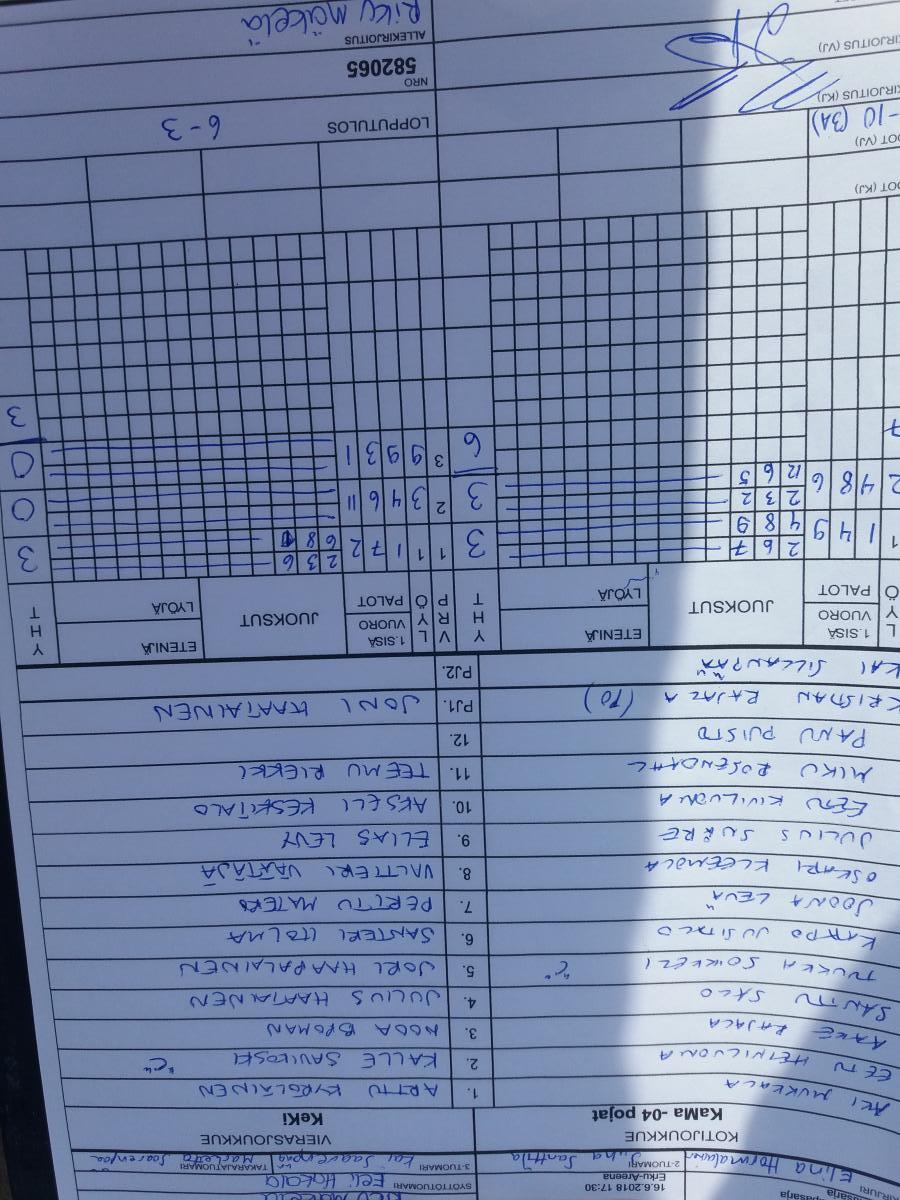 Elina
16.6.2018 17:30
Erku-Areena
2-TUOMARI Juha Santtila
SYÖTTÖTUOMARI Eeli Hakola
3-TUOMARI
TAKARAJATUOMARI
KOTIJOUKKUE
KaMa -04 pojat
VIERASJOUKKUE
KeKi
AKI MUKKALA 1. ARTTU KYRÖLÄINEN
EETU HEINILUOMA 2. KALLE SAVIKOSKI "C"
AAKE RAJALA 3. NOOA BROMAN
SANTTU SALO 4. JULIUS HAATAINEN
TUUKKA SOIKKELI "C" 5. JORI HAAPALAINEN
KAAPO JUSITALO 6. SANTERI
JOONA LEVÄ 7. PERTTU MATERO
OSKARI KLEEMOLA 8. VALTTERI VÄÄTÄJÄ
JULIUS 9. ELIAS LEVY
EETU KIVILUOMA 10. AKSELI KESKITALO
MIKU ROSENDAHL 11. TEEMU RIEKKI
PANU PUISTO 12.
KRISTIAN RAJALA (PO) PJ1. JONI HAATAINEN
KAI SILLANPÄÄ PJ2.
L Y Ö 1.SISÄ VUORO PALOT JUOKSUT ETENIJÄ LYÖJÄ Y H T V R P L Y Ö 1.SISÄ VUORO PALOT JUOKSUT ETENIJÄ LYÖJÄ Y H T
1 1 4 9 2 6 7 3 1 1 1 7 2 2 3 6 3
4 8 9 6 8
2 4 8 6 2 3 2 3 2 3 4 6 11 0
12 6 5
7 6 3 9 9 3 1 0
3
LOPPUTULOS 6-3
-10 (3A)
NRO
582065
ALLEKIRJOITUS
Riku Mäkelä